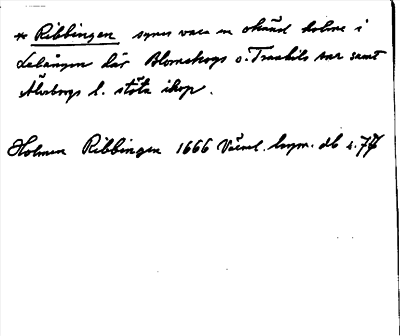 * Ribbingen synes vara en okänd holme i
Lelången där Blomskogs o. Trankils snr samt
Älvsborgs l. stöta ihop.
Holmen Ribbingen 1666 Värml. hym. db s. 77